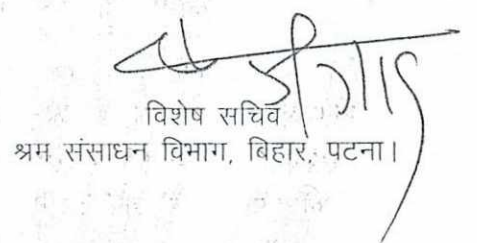 विशेष सचिव
श्रम संसाधन विभाग, बिहार, पटना।